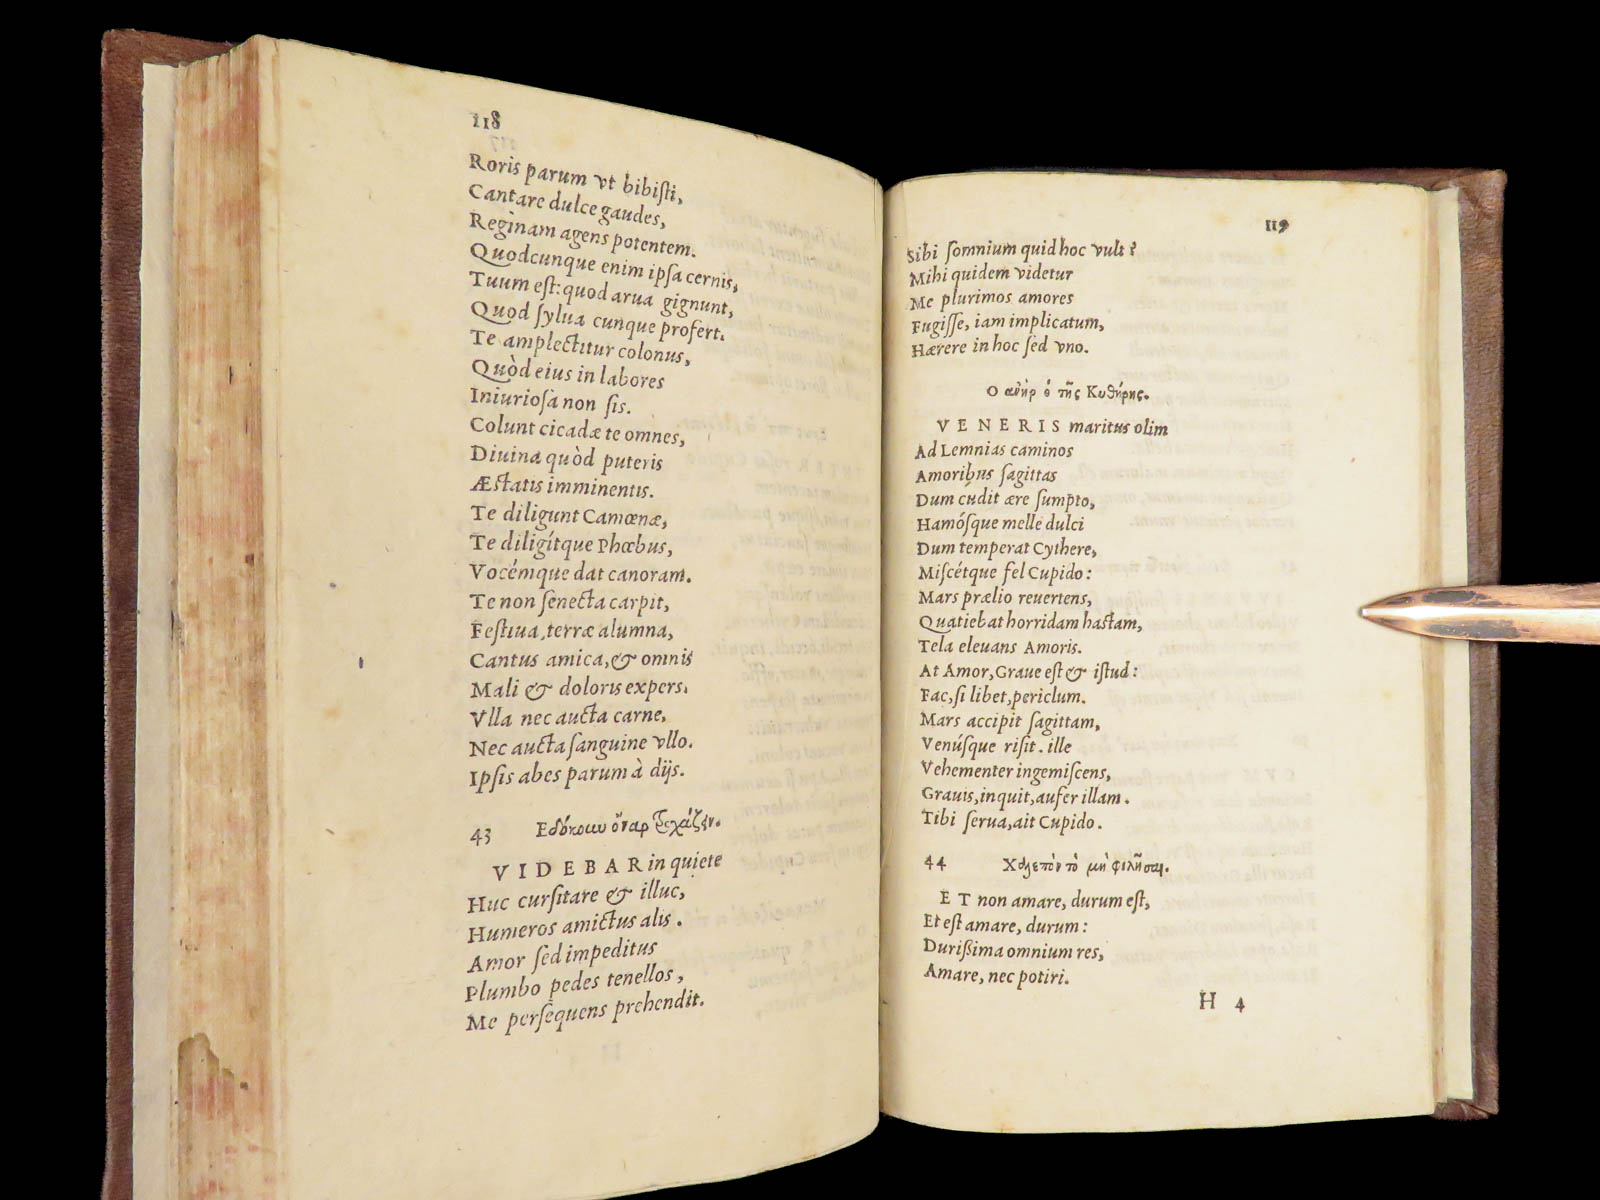 118
Roris parum vt bibiſti,
Cantare dulce gaudes,
Reginam agens potentem.
Quodcunque enim ipſa cernis,
Tuum eſt: quod arua gignunt,
Quod ſylua cunque profert.
Te amplectitur colonus,
Quòd eius in labores
Iniurioſa non ſis.
Colunt cicadæ te omnes,
Diuina quòd puteris
Æstatis imminentis.
Te diligunt Camœnæ,
Te diligítque Phœbus,
Vocémque dat canoram.
Te non ſenecta carpit,
Feſtiua, terræ alumna,
Cantus amica, & omnis
Mali & doloris expers.
Vlla nec aucta carne,
Nec aucta ſanguine vllo.
Ipſis abes parum à dijs.
43 Εδόκουν ὄναρ τροχάζειν.
VIDEBAR in quiete
Huc curſitare & illuc,
Humeros amictus alis.
Amor ſed impeditus
Plumbo pedes tenellos,
Me perſequens prehendit.
119
Sibi ſomnium quid hoc vult?
Mihi quidem videtur
Me plurimos amores
Fugiſſe, iam implicatum,
Hærere in hoc ſed vno.
Ο ανὴρ ὁ τῆς Κυθήρης.
VENERIS maritus olim
Ad Lemnias caminos
Amoribus ſagittas
Dum cúdit ære ſumpto,
Hamóſque melle dulci
Dum temperat Cythere,
Miſcétque fel Cupido:
Mars prælio reuertens,
Quatiebat horridam hastam,
Tela eleuans Amoris.
At Amor, Graue eſt & iſtud:
Fac, ſi libet, periclum.
Mars accipit ſagittam,
Venúſque riſit. ille
Vehementer ingemiſcens,
Grauis, inquit, aufer illam.
Tibi ſerua, ait Cupido.
44 Χαλεπὸν τὸ μὴ φιλῆσαι.
ET non amare, durum eſt,
Et eſt amare, durum:
Durißima omnium res,
Amare, nec potiri.
H 4